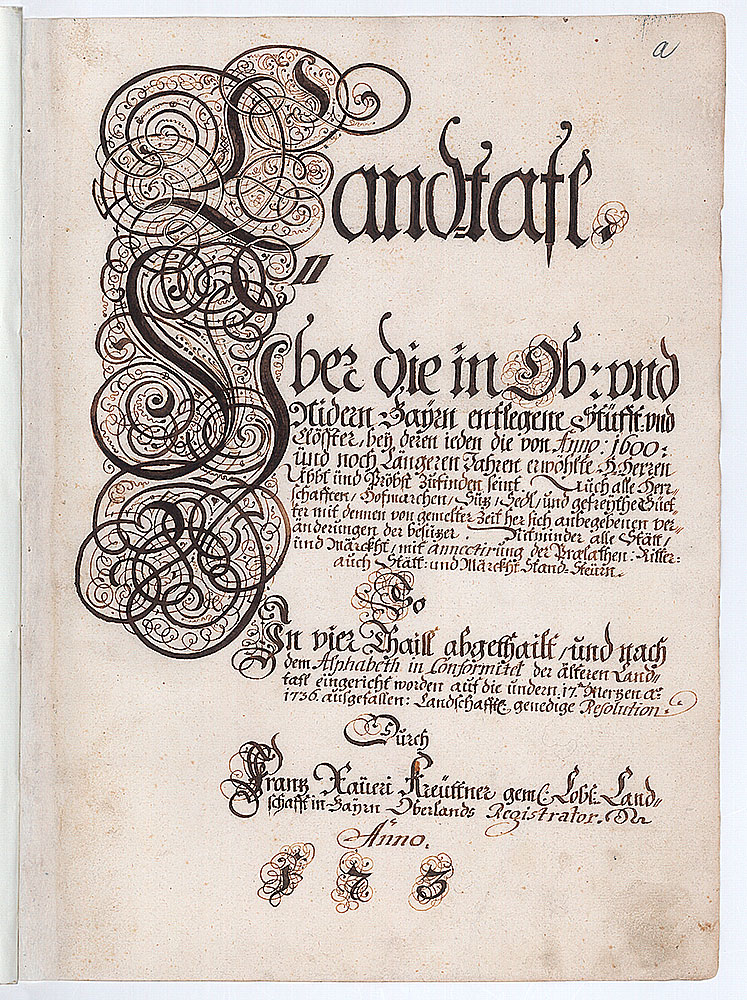 a
Landtafl.
Über die in Ob: und
Nidern Bayrn entlegene Stüfft: und
Clöster, bey deren ieden die von Anno: 1600:
und noch Längeren Jahren erwöhlte H: Herren
Abbt und Pröbst Zufinden seint. Auch alle Herr=
schafften, Hofmarchen, Süz, Sedl, und gefreythe Güet=
ter mit dennen von gemelter Zeit her sich anbegebenen ver=
änderungen der besüzer. Nitminder alle Stätt,
und Märckht, mit annectirung der Praelathen: Ritter:
auch Statt: und Märckht Stand=Steürn.
So
In vier Thaill abgethailt, und nach
dem Alphabeth in Conformitet der älteren Land=
tafl eingericht worden auf die undern 17. Mertzen ao:
1736. ausgefallen: Landschafftl: genedige Resolution.
Durch
Frantz Xaveri Kreüttner gem: Lobl: Land=
schafft in Bayrn Oberlands Registrator.
Anno.
173